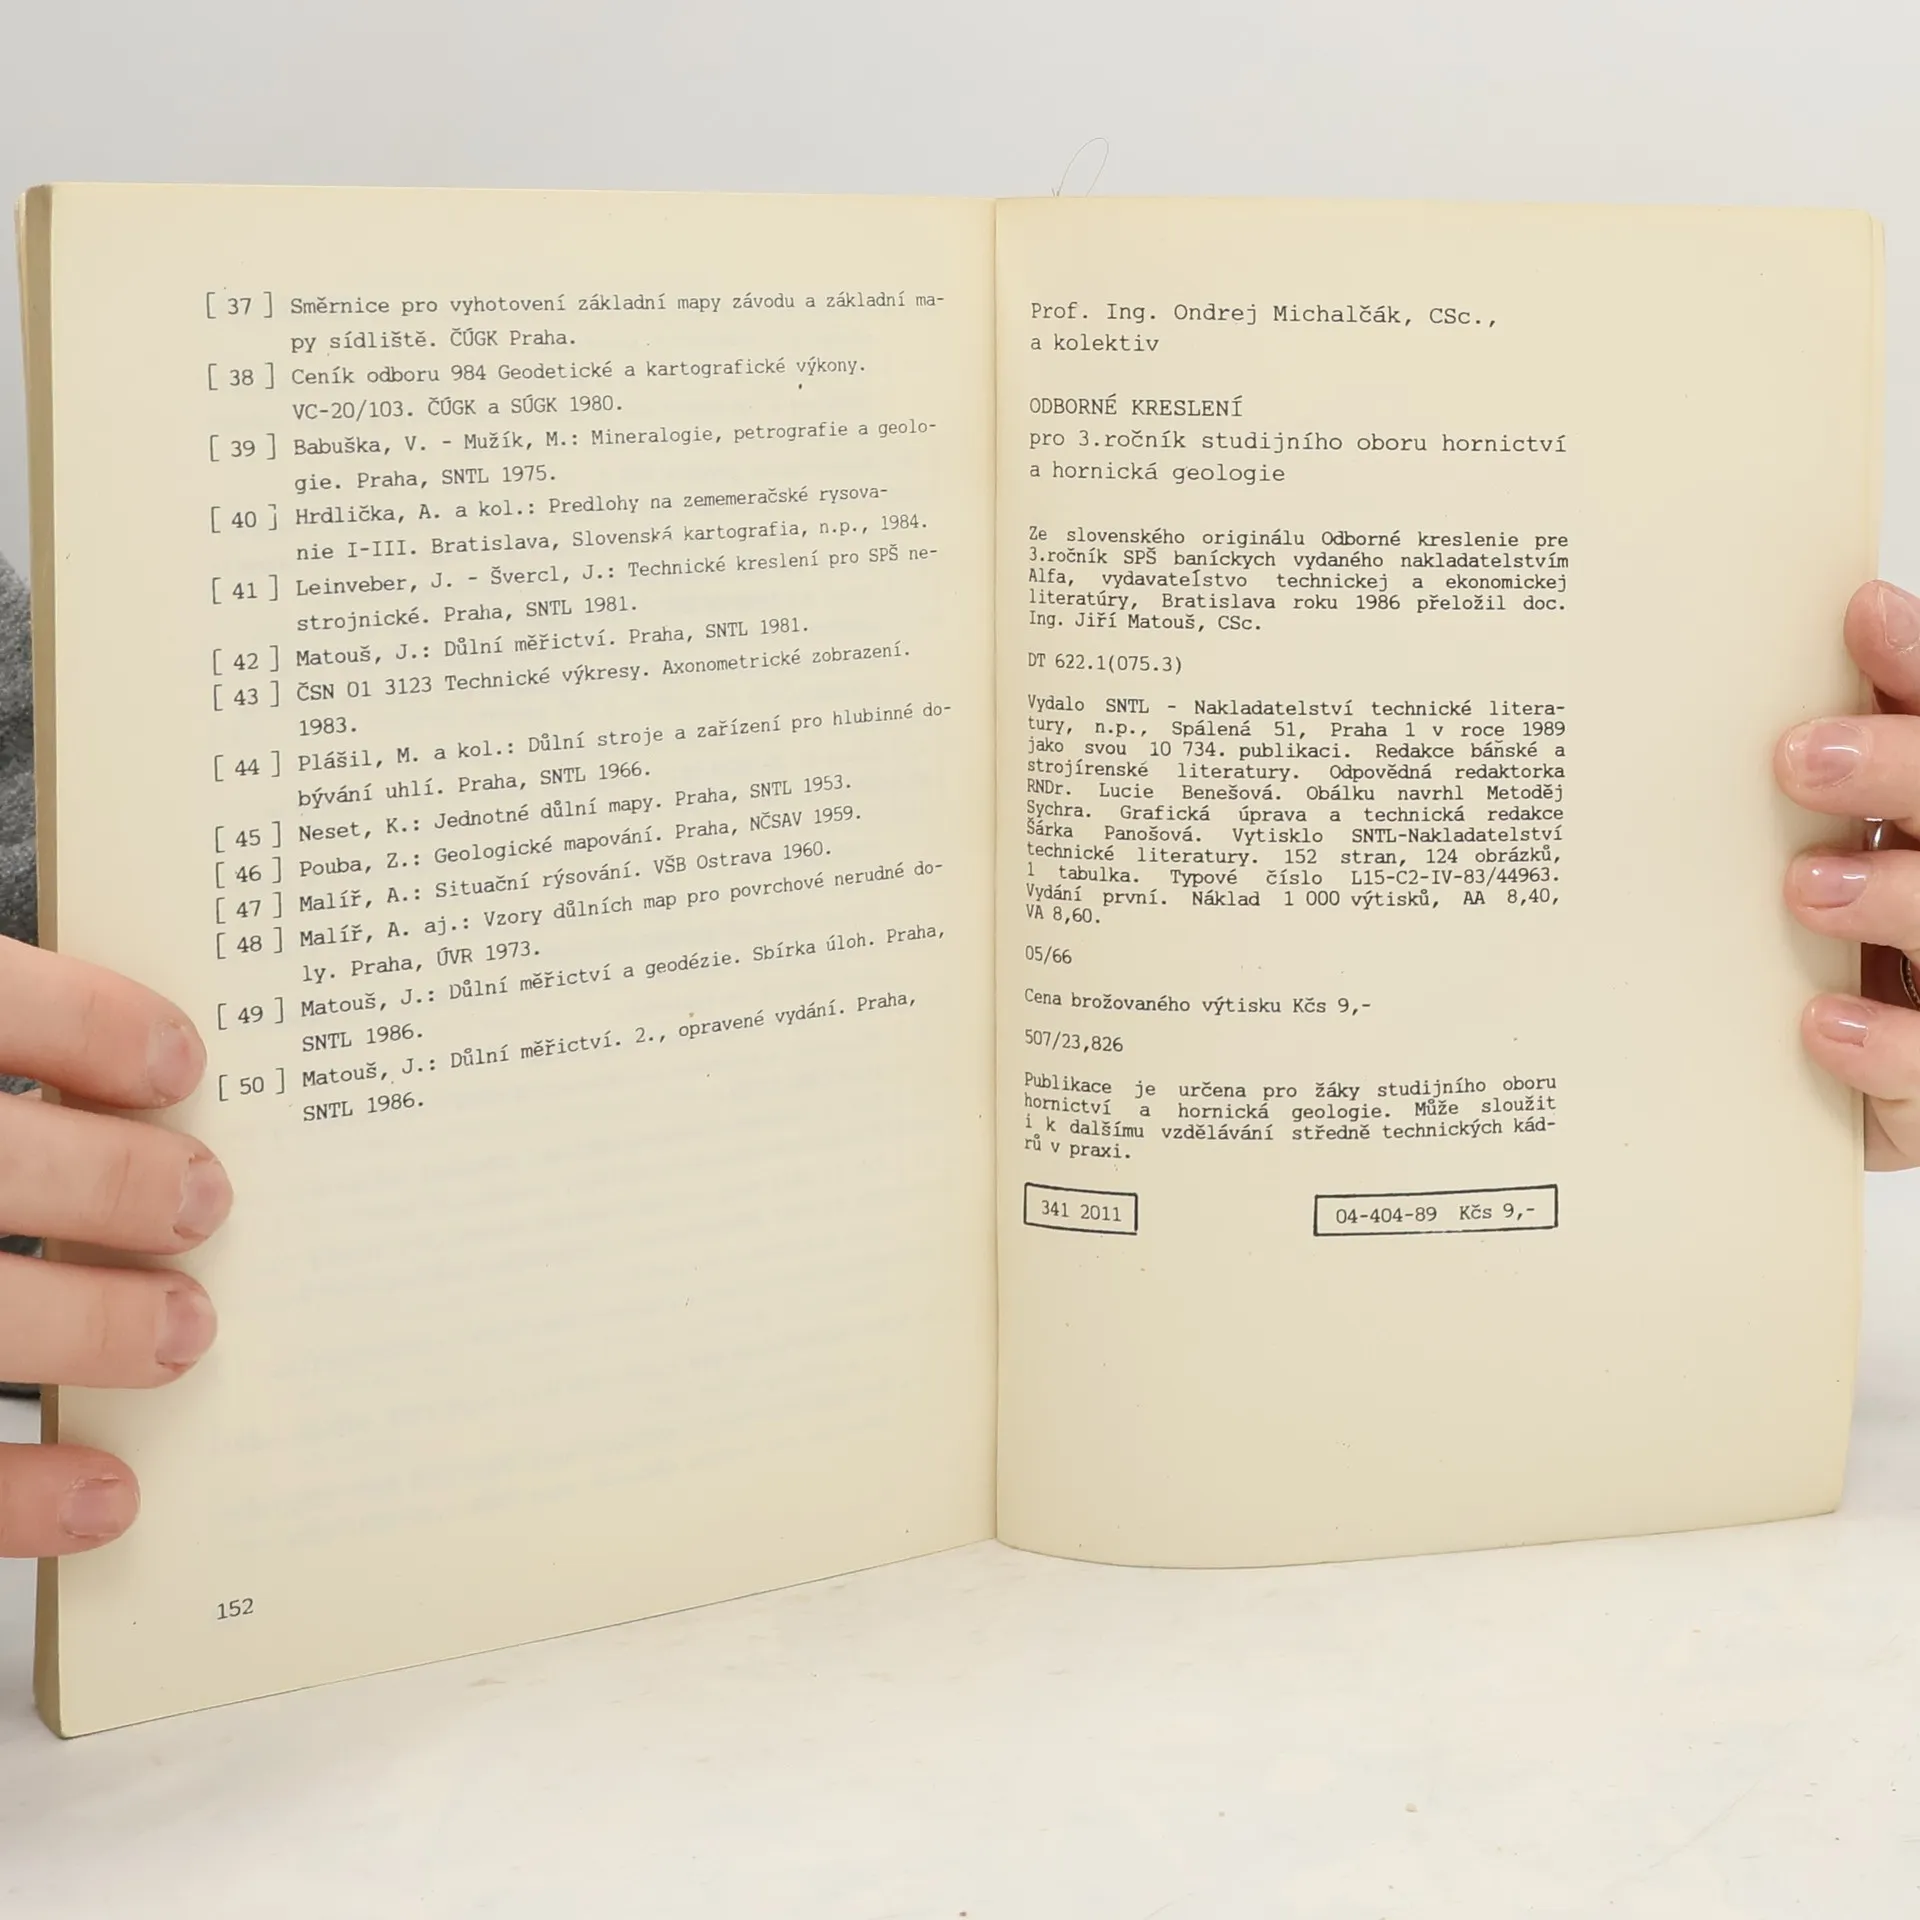 [ 37 ] Směrnice pro vyhotovení základní mapy závodu a základní ma-
py sídliště. ČÚGK Praha.
[ 38 ] Ceník odboru 984 Geodetické a kartografické výkony.
VC-20/103. ČÚGK a SÚGK 1980.
[ 39 ] Babuška, V. - Mužík, M.: Mineralogie, petrografie a geolo-
gie. Praha, SNTL 1975.
[ 40 ] Hrdlička, A. a kol.: Predlohy na zememeračské rysova-
nie I-III. Bratislava, Slovenská kartografia, n.p., 1984.
[ 41 ] Leinveber, J. - Švercl, J.: Technické kreslení pro SPŠ ne-
strojnické. Praha, SNTL 1981.
[ 42 ] Matouš, J.: Důlní měřictví. Praha, SNTL 1981.
[ 43 ] ČSN 01 3123 Technické výkresy. Axonometrické zobrazení.
1983.
[ 44 ] Plášil, M. a kol.: Důlní stroje a zařízení pro hlubinné do-
bývání uhlí. Praha, SNTL 1966.
[ 45 ] Neset, K.: Jednotné důlní mapy. Praha, SNTL 1953.
[ 46 ] Pouba, Z.: Geologické mapování. Praha, NČSAV 1959.
[ 47 ] Malíř, A.: Situační rýsování. VŠB Ostrava 1960.
[ 48 ] Malíř, A. aj.: Vzory důlních map pro povrchové nerudné do-
ly. Praha, ÚVR 1973.
[ 49 ] Matouš, J.: Důlní měřictví a geodézie. Sbírka úloh. Praha,
SNTL 1986.
[ 50 ] Matouš, J.: Důlní měřictví. 2., opravené vydání. Praha,
SNTL 1986.
152
Prof. Ing. Ondrej Michalčák, CSc.,
a kolektiv
ODBORNÉ KRESLENÍ
pro 3.ročník studijního oboru hornictví
a hornická geologie
Ze slovenského originálu Odborné kreslenie pre
3.ročník SPŠ baníckych vydaného nakladatelstvím
Alfa, vydavateľstvo technickej a ekonomickej
literatúry, Bratislava roku 1986 přeložil doc.
Ing. Jiří Matouš, CSc.
DT 622.1(075.3)
Vydalo SNTL - Nakladatelství technické litera-
tury, n.p., Spálená 51, Praha 1 v roce 1989
jako svou 10 734. publikaci. Redakce báňské a
strojírenské literatury. Odpovědná redaktorka
RNDr. Lucie Benešová. Obálku navrhl Metoděj
Sychra. Grafická úprava a technická redakce
Šárka Panošová. Vytisklo SNTL-Nakladatelství
technické literatury. 152 stran, 124 obrázků,
1 tabulka. Typové číslo L15-C2-IV-83/44963.
Vydání první. Náklad 1 000 výtisků, AA 8,40,
VA 8,60.
05/66
Cena brožovaného výtisku Kčs 9,-
507/23,826
Publikace je určena pro žáky studijního oboru
hornictví a hornická geologie. Může sloužit
i k dalšímu vzdělávání středně technických kád-
rů v praxi.
341 2011
04-404-89 Kčs 9,-